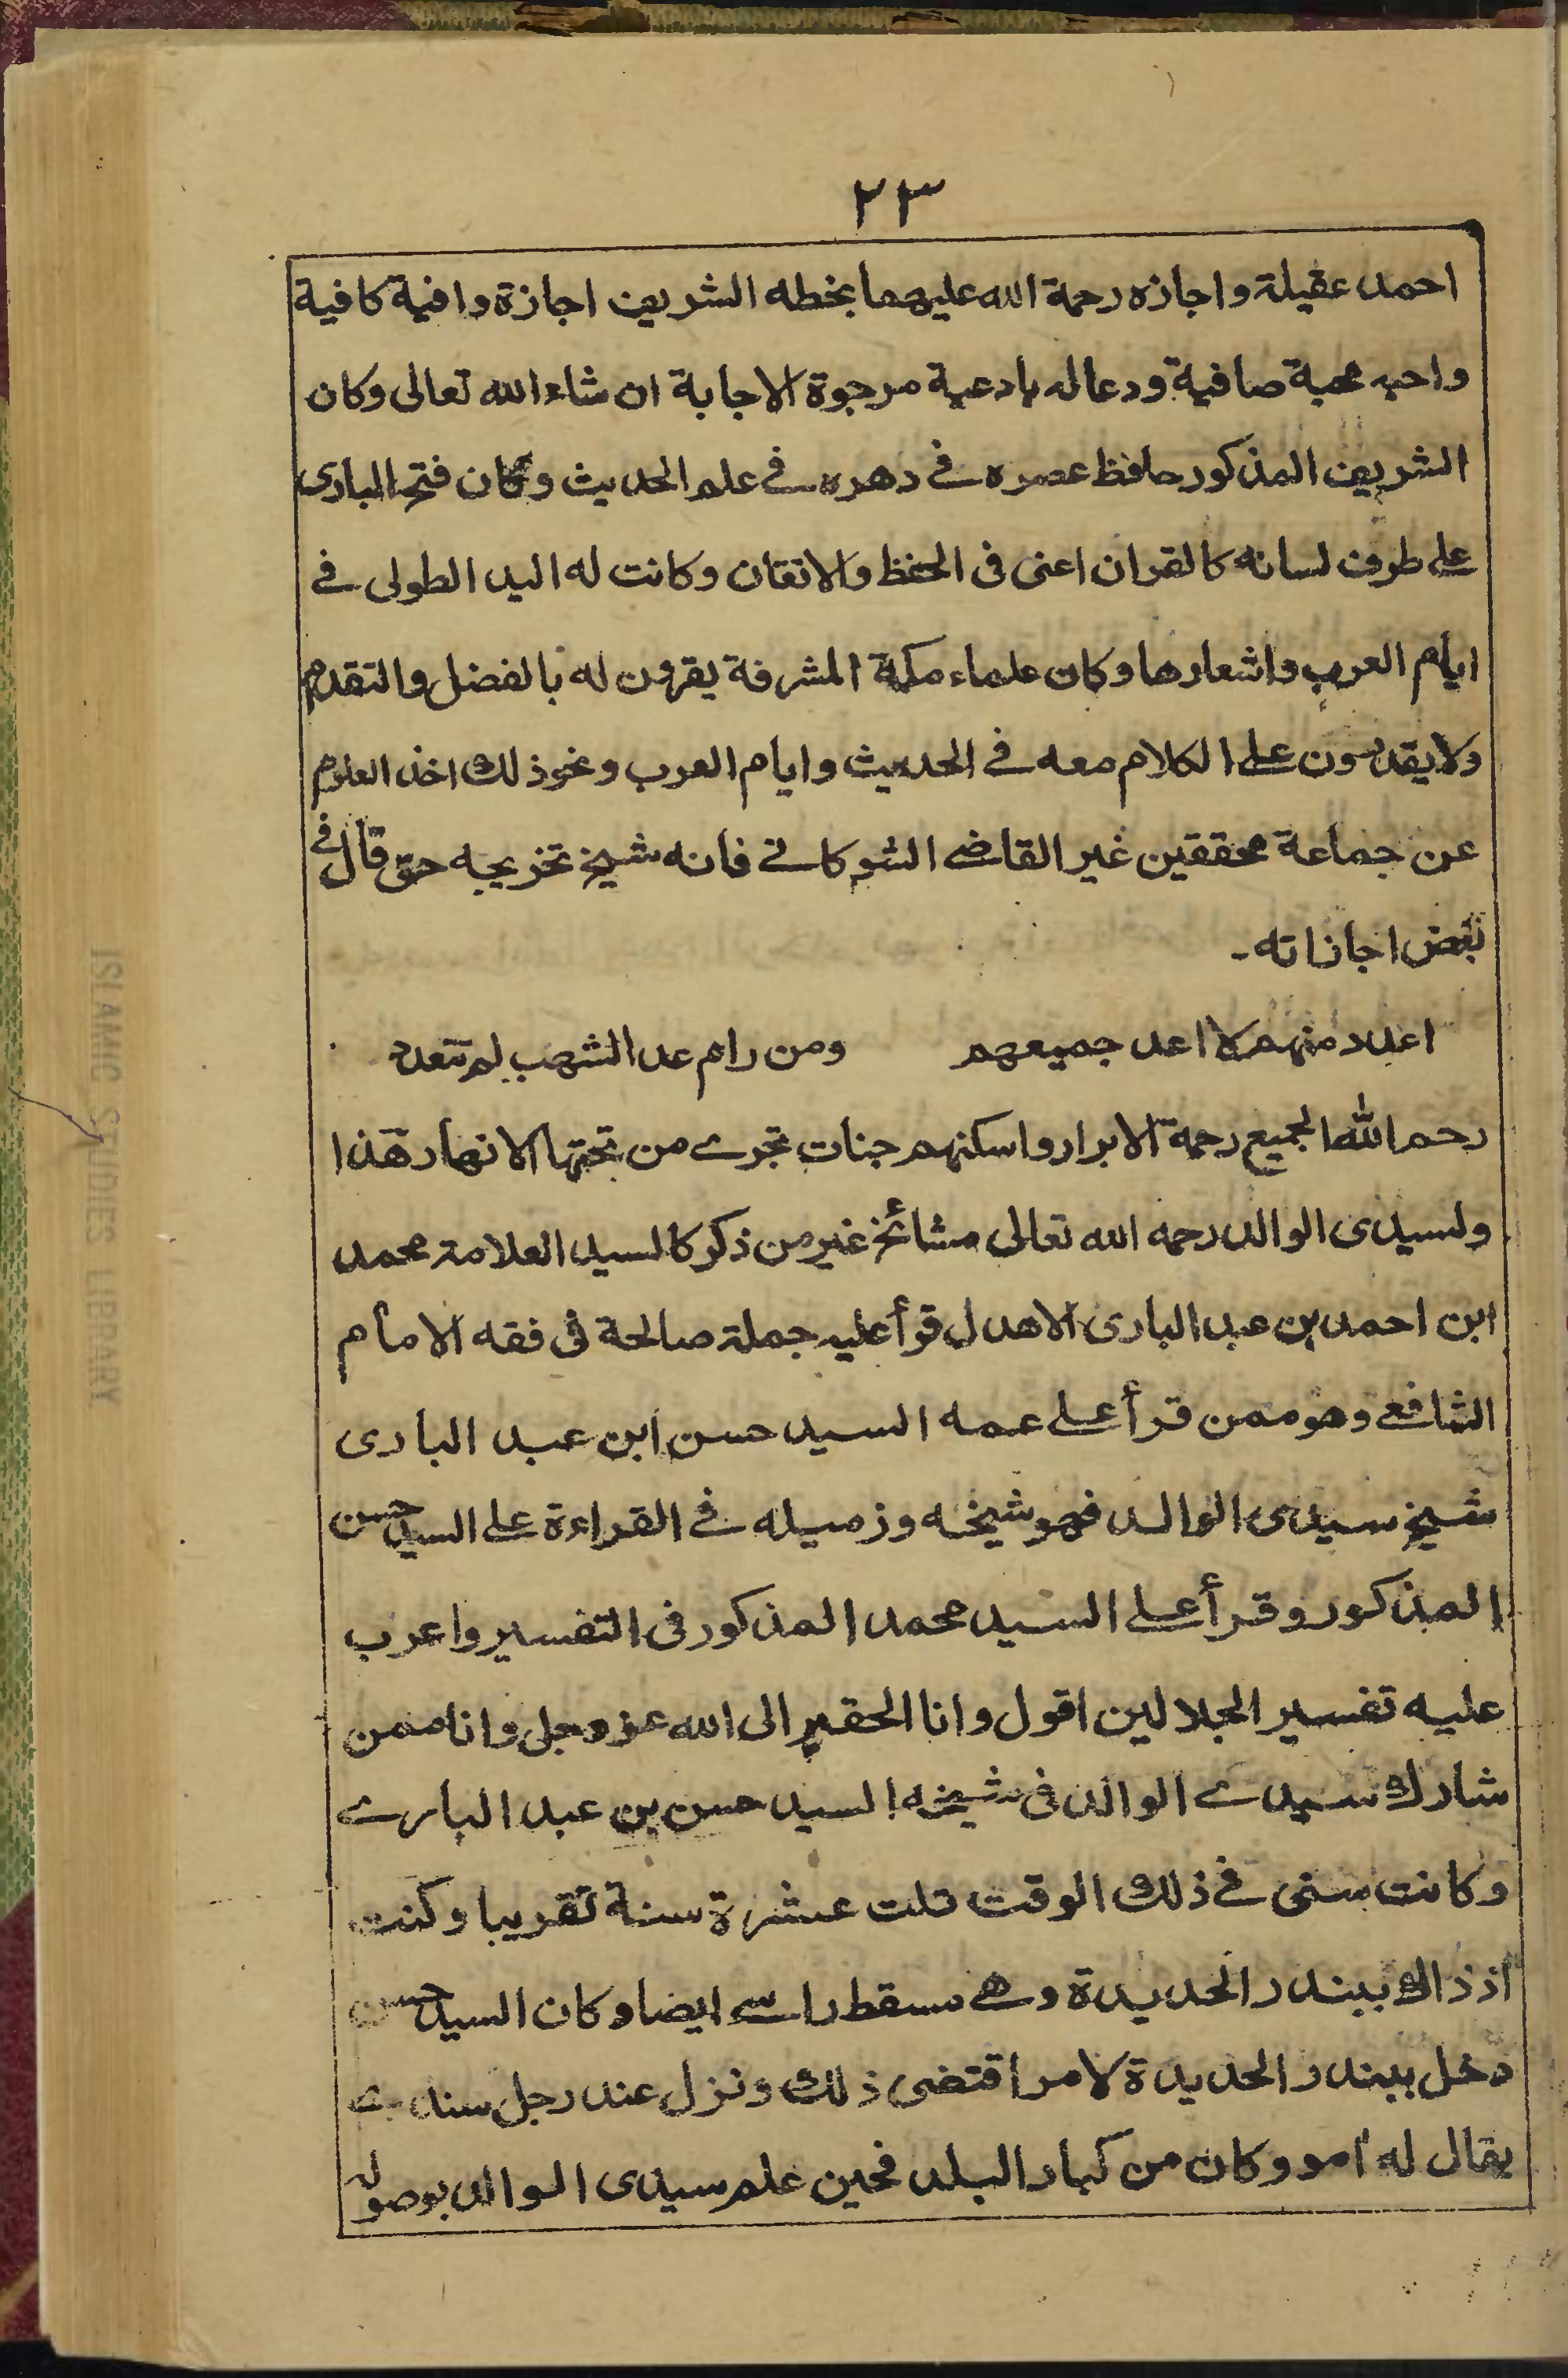 ٢٣
احمد عقيلة واجازه رحمة الله عليهما بخطه الشريف اجازة وافية كافية
واحبه محبة صافية ودعا له بادعية مرجوة الاجابة ان شاء الله تعالى وكان
الشريف المذكور حافظ عصره في دهره في علم الحديث وكان فتح البارى
على طرف لسانه كالقران اعنى فى الحفظ والاتقان وكانت له اليد الطولى في
ايام العرب واشعارها وكان علماء مكة المشرفة يقرون له بالفضل والتقدم
ولا يقدرون على الكلام معه في الحديث وايام العرب ونحو ذلك اخذ العلوم
عن جماعة محققين غير القاضي الشوكاني فانه شيخ تخريجه حتى قال في
بعض اجازاته۔
اعدد منهم لا اعد جميعهم ومن رام عد الشهب لم تتعدد
رحم الله الجميع رحمة الابرار واسكنهم جنات تجري من تحتها الانهار هذا
ولسيدى الوالد رحمه الله تعالى مشائخ غير من ذكر كالسيد العلامة محمد
ابن احمد بن عبد البارى الاهدل قرأ عليه جملة صالحة فى فقه الامام
الشافعي وهو ممن قرأ على عمه السيد حسن ابن عبد البارى
شيخ سيدى الوالد فهو شيخه وزميله في القراءة على السيد حسن
المذكور وقرأ على السيد محمد المذكور فى التفسير واعرب
عليه تفسير الجلالين اقول وانا الحقير الى الله عز وجل وانا ممن
شارك سيدي الوالد فى شيخه السيد حسن بن عبد الباري
وكانت سنى في ذلك الوقت ثلث عشرة سنة تقريبا وكنت
اذ ذاك ببندر الحديدة وهي مسقط راسي ايضا وكان السيد حسن
دخل ببندر الحديدة لامر اقتضى ذلك ونزل عند رجل سندي
يقال له امو وكان من كبار البلد فحين علم سيدى الوالد بوصوله
ISLAMIC STUDIES LIBRARY